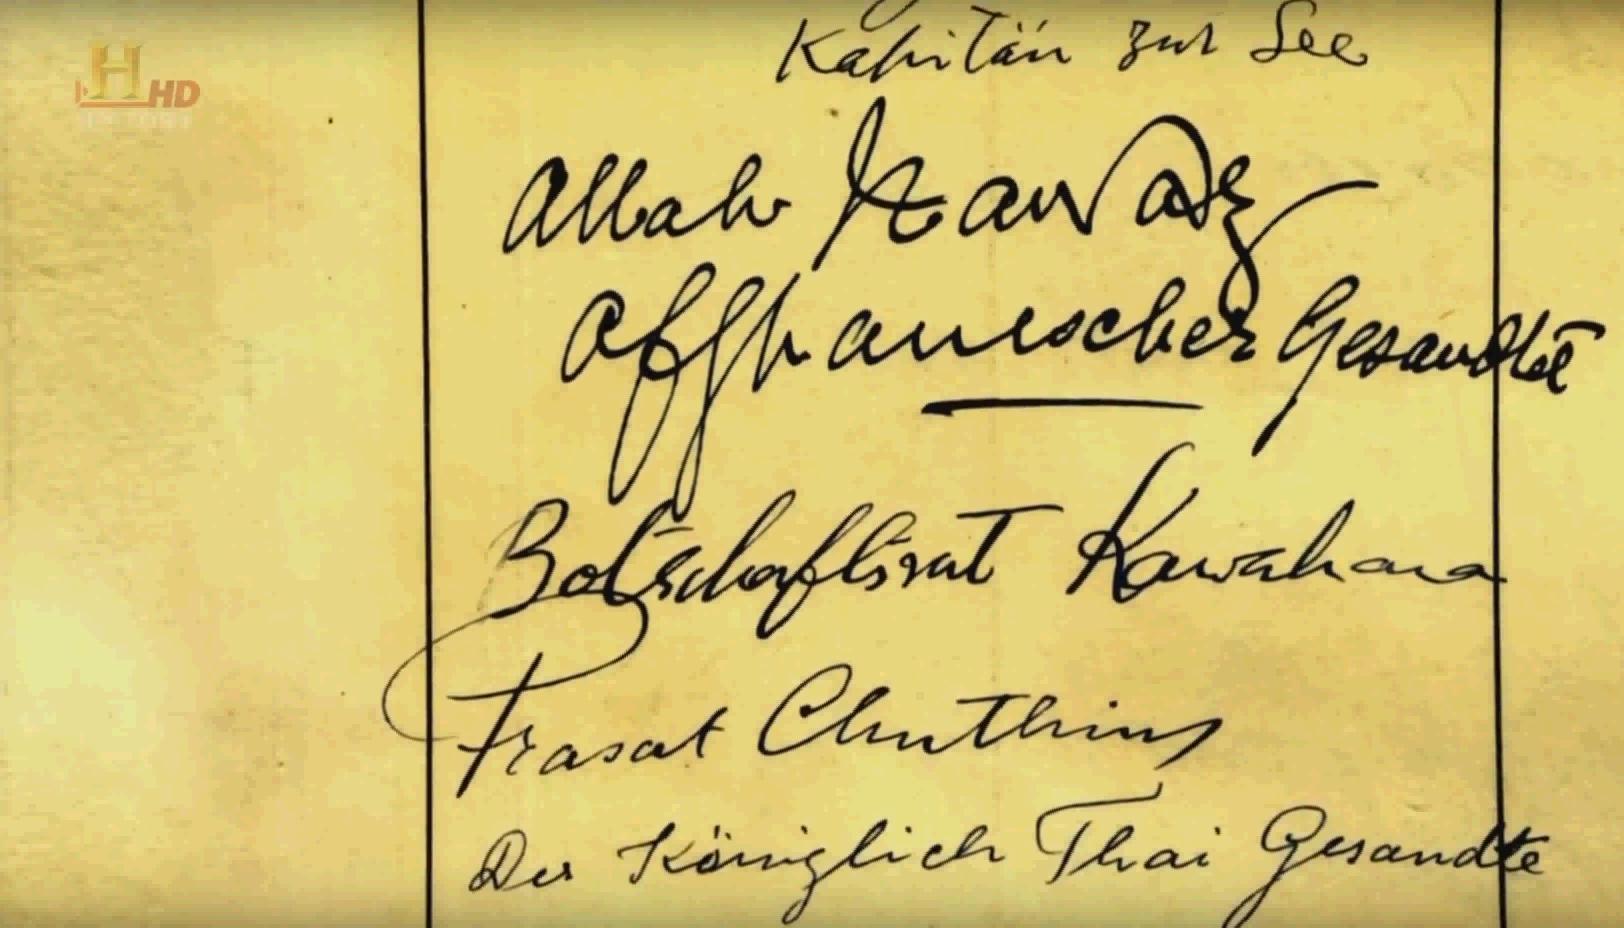 H HD
HISTORY
Kapitän zur See
Allah Nawaz
Afghanischer Gesandte
Botschaftsrat Kawahara
Prasat Chuthin
Der Königlich Thai Gesandte